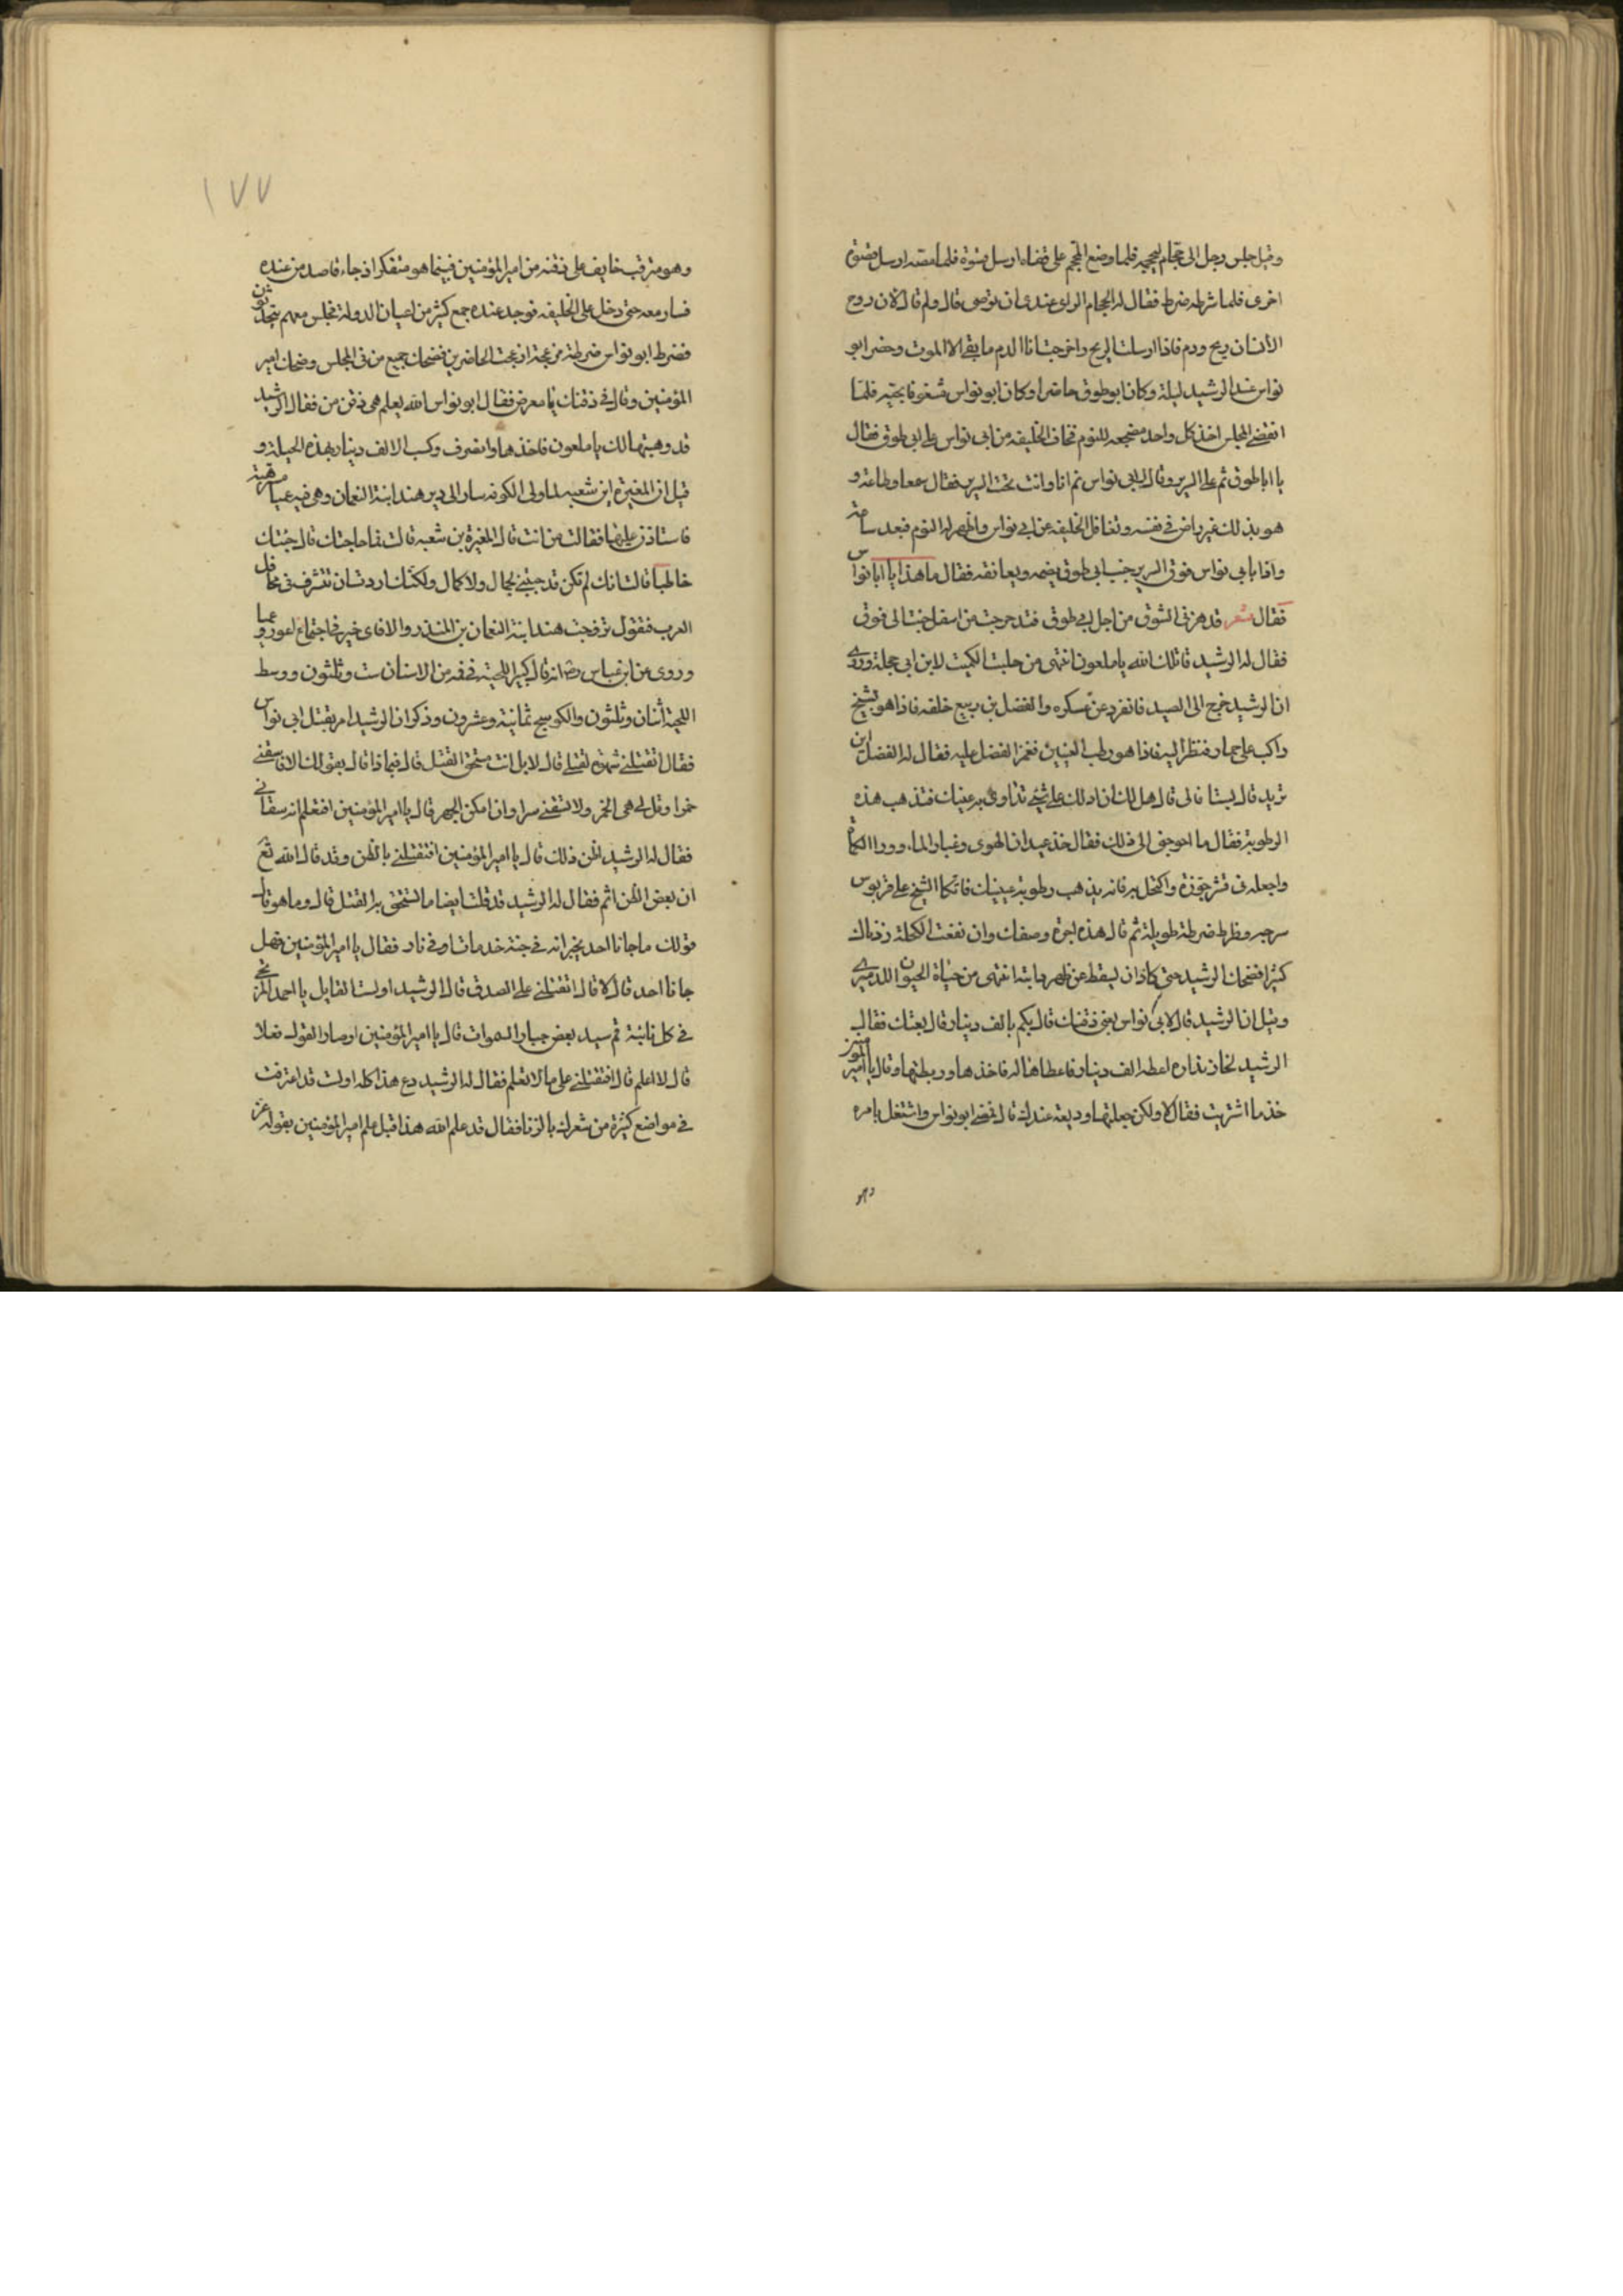 وقيل جلس رجل الى حجام ليحجمه فلما وضع المحجم على قفاه ارسل فسوة فلما مصه ارسل فسوة
اخرى فلما شرطه ضرط فقال له الحجام الراى عندى ان توصى قال ولم قال لان روح
الانسان ريح ودم فاذا ارسلت الريح واخرجت انا الدم ما بقى الا الموت وحضر ابو
نواس عند الرشيد ليلة وكان ابو طوق حاضرا وكان ابو نواس مشغوفا بحبه فلما
انقضى المجلس اخذ كل واحد مضجعه للنوم فخاف الخليفه من ابى نواس على ابى طوق فقال
يا ابا طوق نم على السرير وقال لابى نواس نم انا وانت تحت السرير فقال سمعا وطاعة و
هو بذلك غير راض فى نفسه وتغافل الخليفه عن ابى نواس واظهر له النوم فبعد ساعة
واذا بابى نواس فوق السرير جنب ابى طوق يضمه ويعانقه فقال ما هذا يا ابا نواس
فقال شعر قد هزنى الشوق من اجل ابى طوق فتدحرجت من اسفل جئت الى فوق
فقال له الرشيد قاتلك الله يا ملعون انتهى من حلبت الكميت لابن ابى حجلة وروى
ان الرشيد خرج الى الصيد فانفرد عن عسكره والفضل بن ربيع خلفه فاذا هو بشيخ
راكب على حمار فنظر اليه فاذا هو رطب العينين فغمز الفضل عليه فقال له الفضل اين
تريد قال بستانا لى قال هل لك ان ادلك على شئ تداوى به عينيك فتذهب هذه
الرطوبة فقال ما احوجنى الى ذلك فقال خذ عيدان الهوى وغبار الماء وورا الكماة
واجعله فى قشر جوزة واكتحل به فانه يذهب رطوبة عينيك فاتكا الشيخ على قربوس
سرجه وظرط ضرطة طويلة ثم قال هذه اجرة وصفك وان نفعت الكحلة زدناك
كثيرا فضحك الرشيد حتى كاد ان يسقط عن ظهر دابته انتهى من حياة الحيوان للدميرى
وقيل ان الرشيد قال لابى نواس بعنى ذقنك قال بكم بالف دينار قال بعتك فقال
الرشيد لخازنداره اعطه الف دينار فاعطاها له فاخذها وربطها وقال يا امير المومنين
خذ ما اشتريت فقال لا ولكن جعلتها وديعة عندك قال فمضى ابو نواس واشتغل بامره
وهو
١٧٧
وهو مترقب خايف على ذقنه من امير المؤمنين فبينما هو متفكر اذ جاء قاصد من عنده
فسار معه حتى دخل على الخليفه فوجد عنده جمع كثير من اعيان الدولة فجلس معهم يتحدثون
فضرط ابو نواس ضرطة مزعجة ازعجت الحاضرين فضحك جميع من فى المجلس وضحك امير
المؤمنين وقال فى ذقنك يا معرض فقال ابو نواس الله يعلم هى ذقن من فقال الرشيد
قد وهبتها لك يا ملعون فاخذها وانصرف وكسب الالف دينار بهذه الحيلة و
قيل ان المغيرة ابن شعبه لما ولى الكوفه سار الى دير هند ابنة النعمان وهى فيه عميا مترهبة
فاستاذن عليها فقالت من انت قال المغيرة بن شعبه قالت ما حاجتك قال جئتك
خاطبا قالت انك لم تكن قد جئتنى لجمال ولا كمال ولكنك اردت ان تتشرف فى محافل
العرب فتقول تزوجت هند ابنة النعمان بن المنذر والا فاى خير فى اجتماع اعور وعميا
وروى عن ابن عباس رضه انه قال كبير اللحية فى فمه من الاسنان ست وثلثون ووسط
اللحية اثنان وثلثون والكوسج ثمانية وعشرون وذكر ان الرشيد امر بقتل ابى نواس
فقال اتقتلنى شهوة لقتلى قال لا بل انت مستحق القتل قال فيماذا قال بقولك الا فاسقنى
خمرا وقل لى هى الخمر ولا تسقنى سرا وان امكن الجهر قال يا امير المؤمنين افتعلم انه سقانى
فقال له الرشيد اظن ذلك قال يا امير المؤمنين افتقتلنى بالظن وقد قال الله تع
ان بعض الظن اثم فقال له الرشيد قد قلت ايضا ما تستحق به القتل قال وما هو قال
قولك ما جانا احد يخبر انه فى جنة مذ مات او فى نار فقال يا امير المؤمنين فهل
جانا احد قال لا قال اتقتلنى على الصدق قال الرشيد اولست القايل يا احمد المرتجى
فى كل نائبة قم سيدى نعص جبار السموات قال يا امير المؤمنين اوصار القول فعلا
قال لا اعلم قال افتقتلنى على ما لا تعلم فقال له الرشيد دع هذا كله اولست قد اعترفت
فى مواضع كثيرة من شعرك بالزنا فقال قد علم الله هذا قبل علم امير المؤمنين بقوله عز